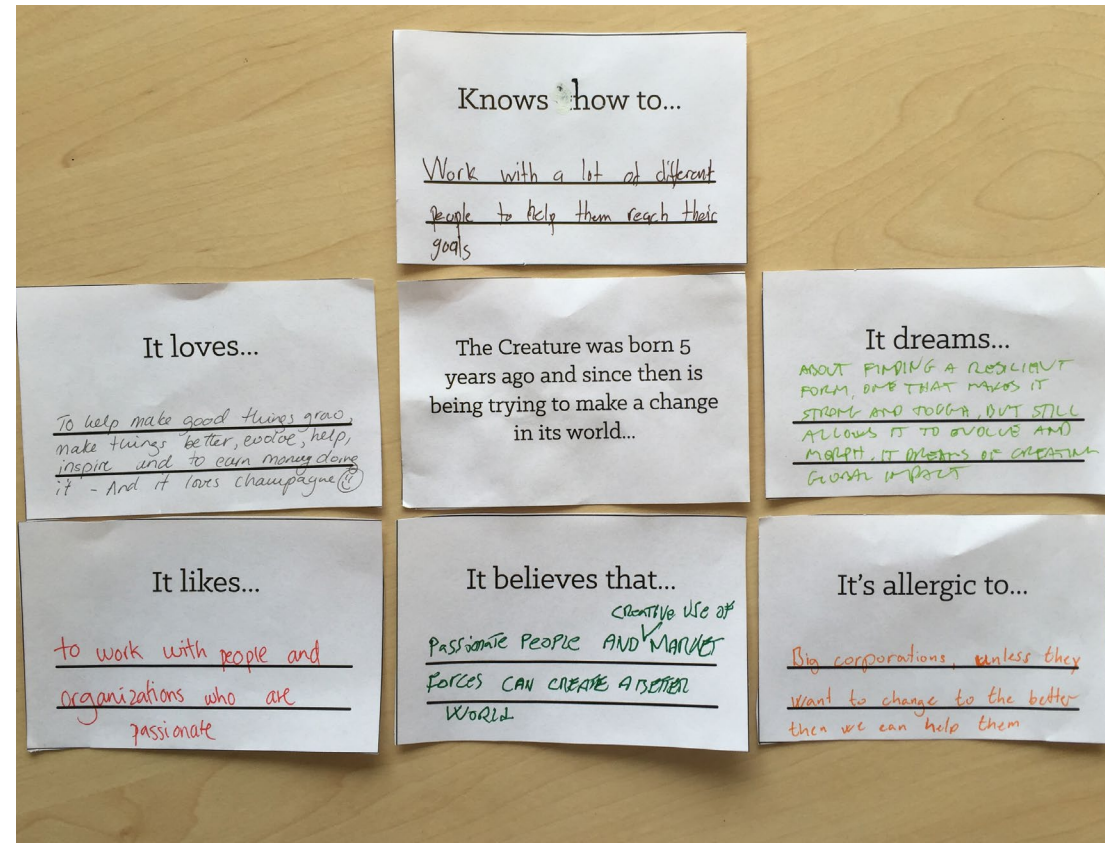 Knows how to...
Work with a lot of different
people to help them reach their
goals
It loves...
To help make good things grow,
make things better, evolve, help,
inspire and to earn money doing
it - And it loves champagne
The Creature was born 5
years ago and since then is
being trying to make a change
in its world...
It dreams...
ABOUT FINDING A RESILIENT
FORM, ONE THAT MAKES IT
STRONG AND TOUGH, BUT STILL
ALLOWS IT TO EVOLVE AND
MORPH. IT DREAMS OF CREATING
GLOBAL IMPACT
It likes...
to work with people and
organizations who are
passionate
It believes that...
CREATIVE USE OF
PASSIONATE PEOPLE AND MARKET
FORCES CAN CREATE A BETTER
WORLD
It's allergic to...
Big corporations, unless they
want to change to the better
then we can help them